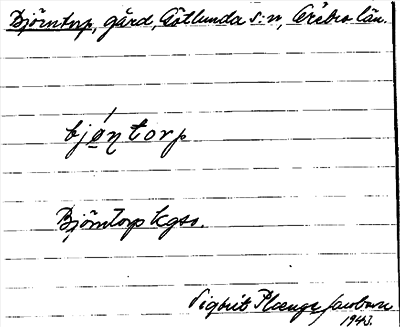 Björntorp, gård, Götlunda s:n, Örebro län.
bjǫ́ŋtorp
Björntorp kgso.
Sigbrit Plænge Jacobson
1943.